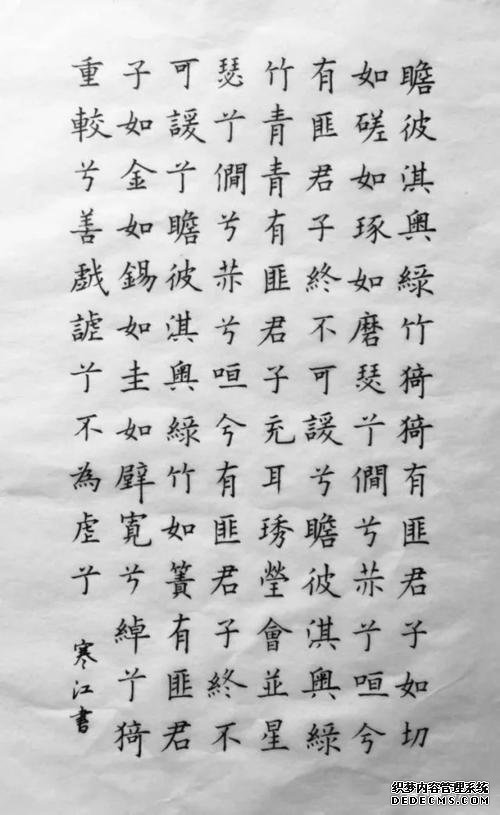 瞻彼淇奧綠竹猗猗有匪君子如切
如磋如琢如磨瑟兮僩兮赫兮咺兮
有匪君子終不可諼兮瞻彼淇奧綠
竹青青有匪君子充耳琇瑩會並星
瑟兮僩兮赫兮咺兮有匪君子終不
可諼兮瞻彼淇奧綠竹如簀有匪君
子如金如錫如圭如璧寬兮綽兮猗
重較兮善戲謔兮不為虐兮
寒江書
织梦内容管理系统
DEDECMS.COM